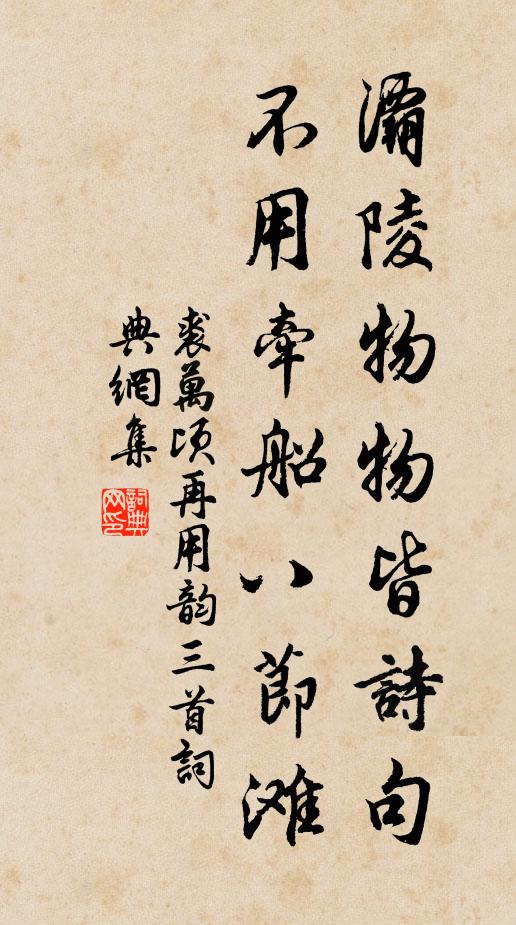 灞陵物物皆詩句
不用牽船八節滩
裘萬頃再用韵三首詞
典網集
詞典網印